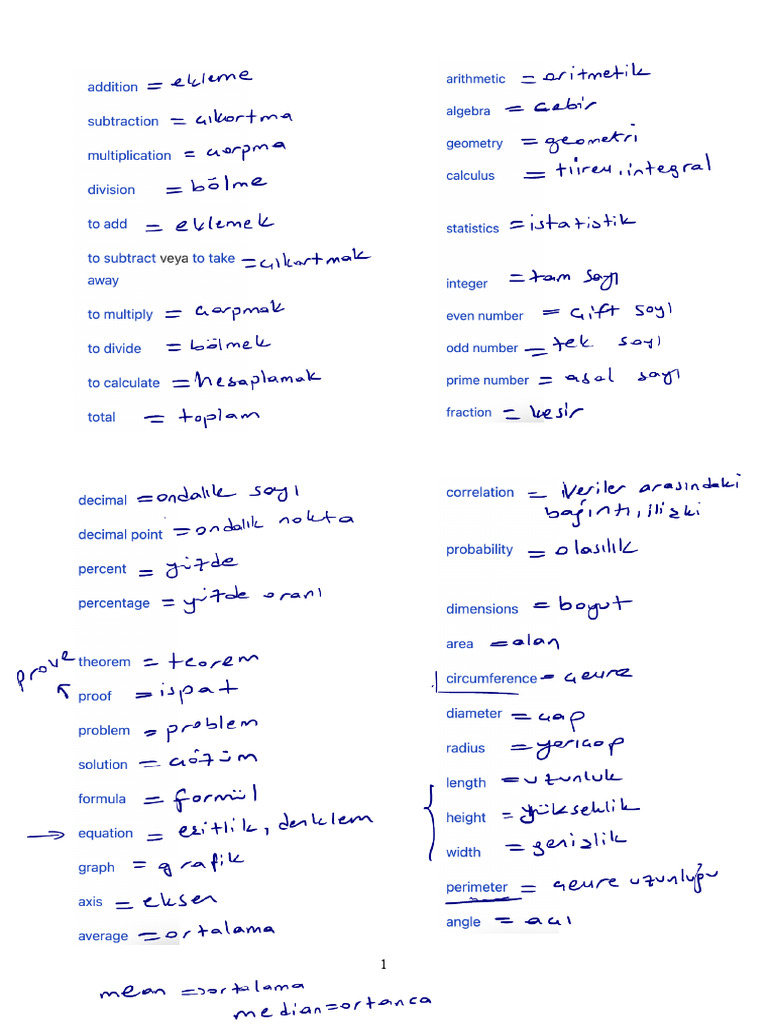 addition = ekleme
subtraction = çıkartma
multiplication = çarpma
division = bölme
to add = eklemek
to subtract veya to take = çıkartmak
away
to multiply = çarpmak
to divide = bölmek
to calculate = hesaplamak
total = toplam
arithmetic = aritmetik
algebra = cebir
geometry = geometri
calculus = türev, integral
statistics = istatistik
integer = tam sayı
even number = çift sayı
odd number = tek sayı
prime number = asal sayı
fraction = kesir
decimal = ondalık sayı
decimal point = ondalık nokta
percent = yüzde
percentage = yüzde oranı
prove
theorem = teorem
proof = ispat
problem = problem
solution = çözüm
formula = formül
→ equation = eşitlik, denklem
graph = grafik
axis = eksen
average = ortalama
correlation = veriler arasındaki
bağıntı, ilişki
probability = olasılık
dimensions = boyut
area = alan
circumference = çevre
diameter = çap
radius = yarıçap
length = uzunluk
height = yükseklik
width = genişlik
perimeter = çevre uzunluğu
angle = açı
1
mean = ortalama
median = ortanca